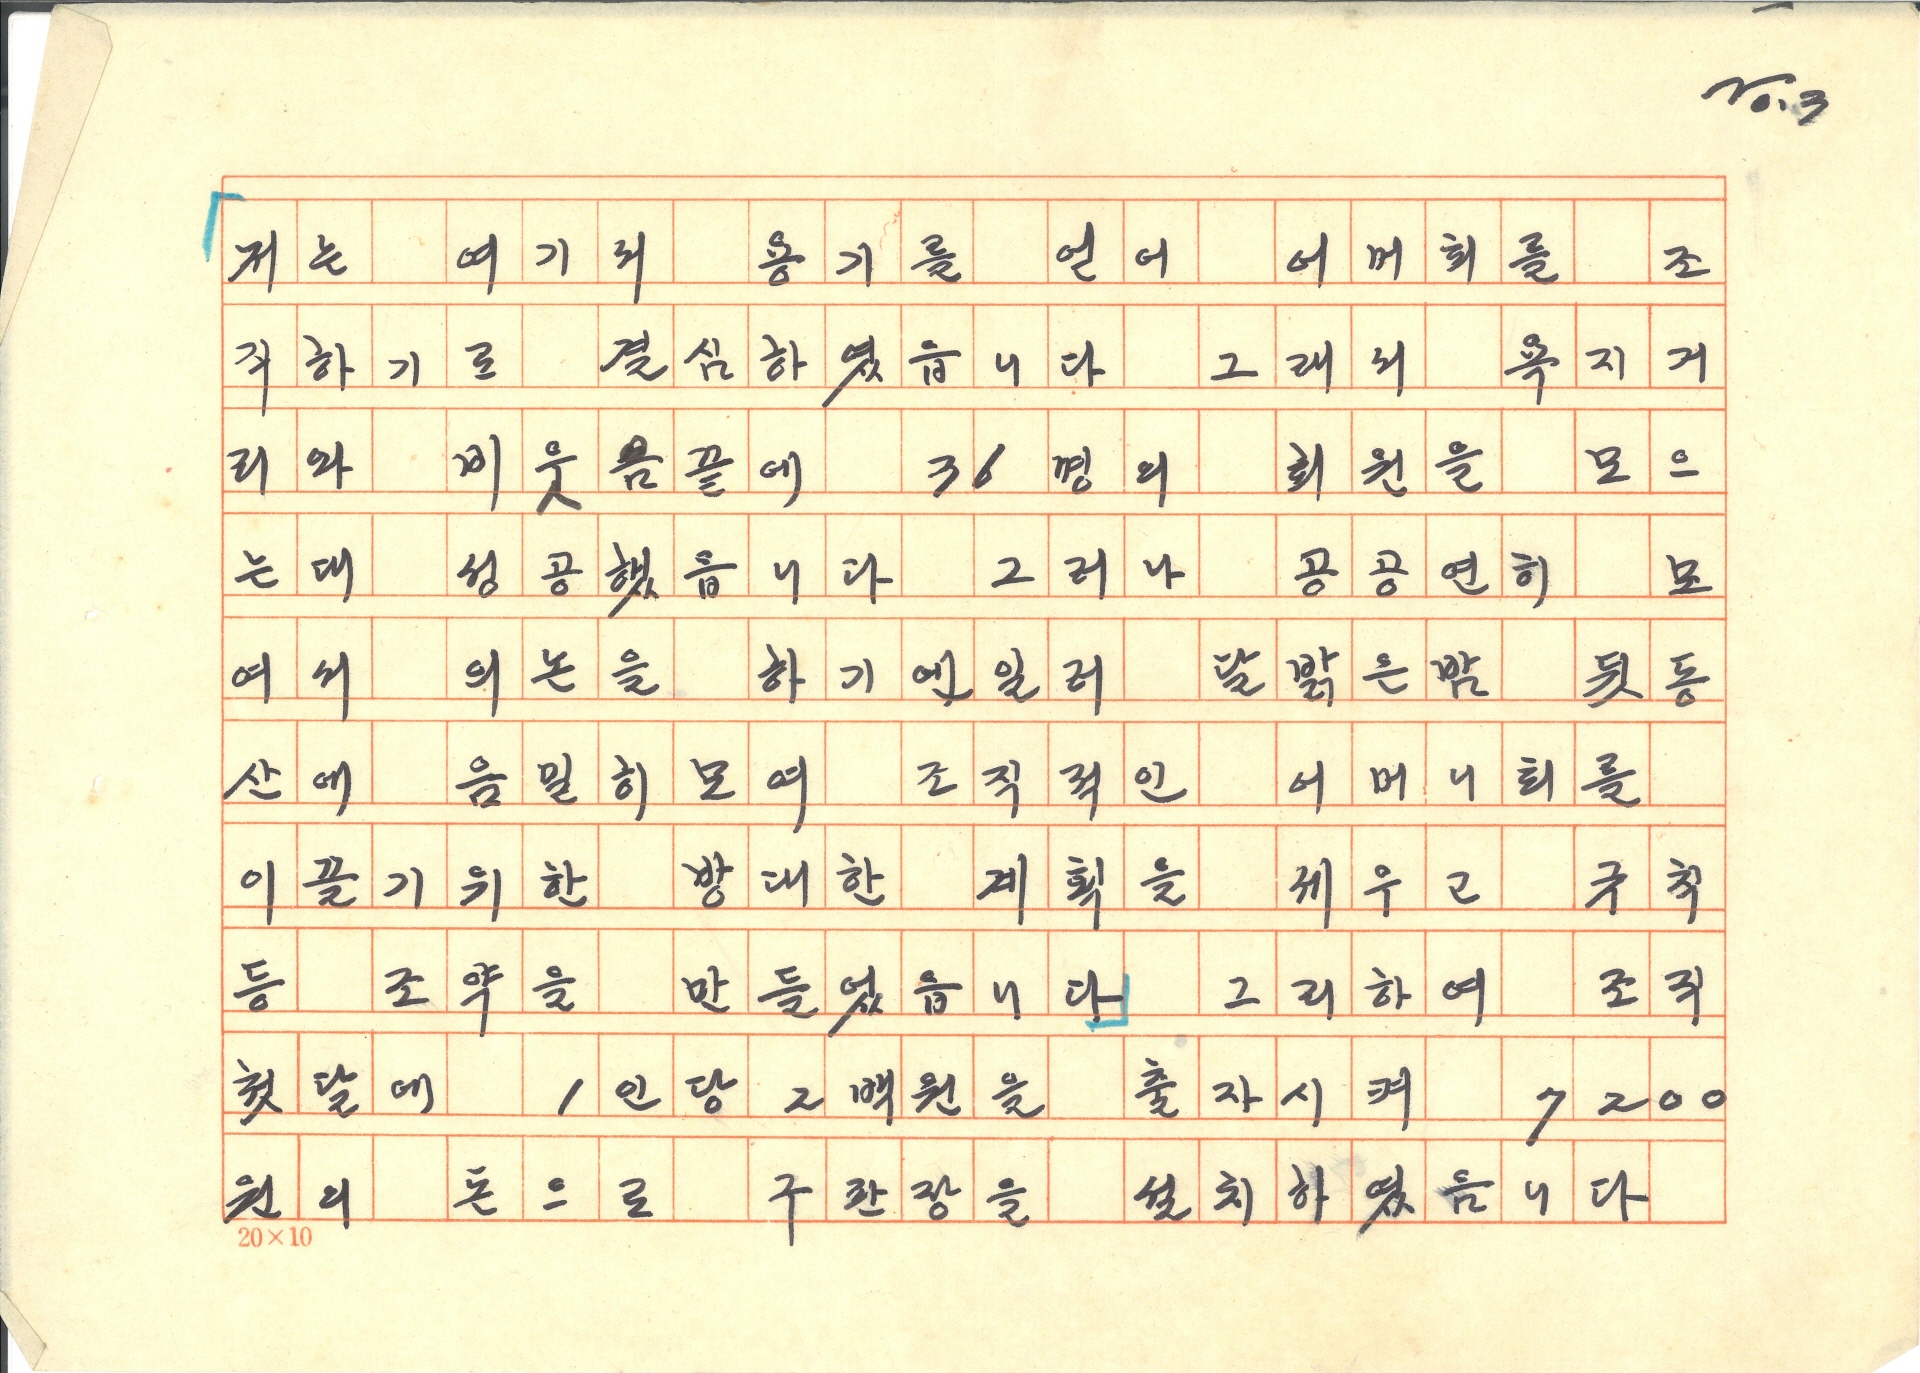 No.3
저는 여기서 용기를 얻어 어머회를 조
직하기로 결심하였읍니다 그래서 욕지거
리와 비웃음끝에 36명의 회원을 모으
는대 성공했읍니다 그러나 공공연히 모
여서 의논을 하기엔일러 달밝은밤 뒷동
산에 음밀히모여 조직적인 어머니회를
이끌기위한 방대한 계획을 세우고 규칙
등 조약을 만들었읍니다 그리하여 조직
첫달에 1인당 2백원을 출자시켜 7200
원의 돈으로 구판장을 설치하였음니다
20×10